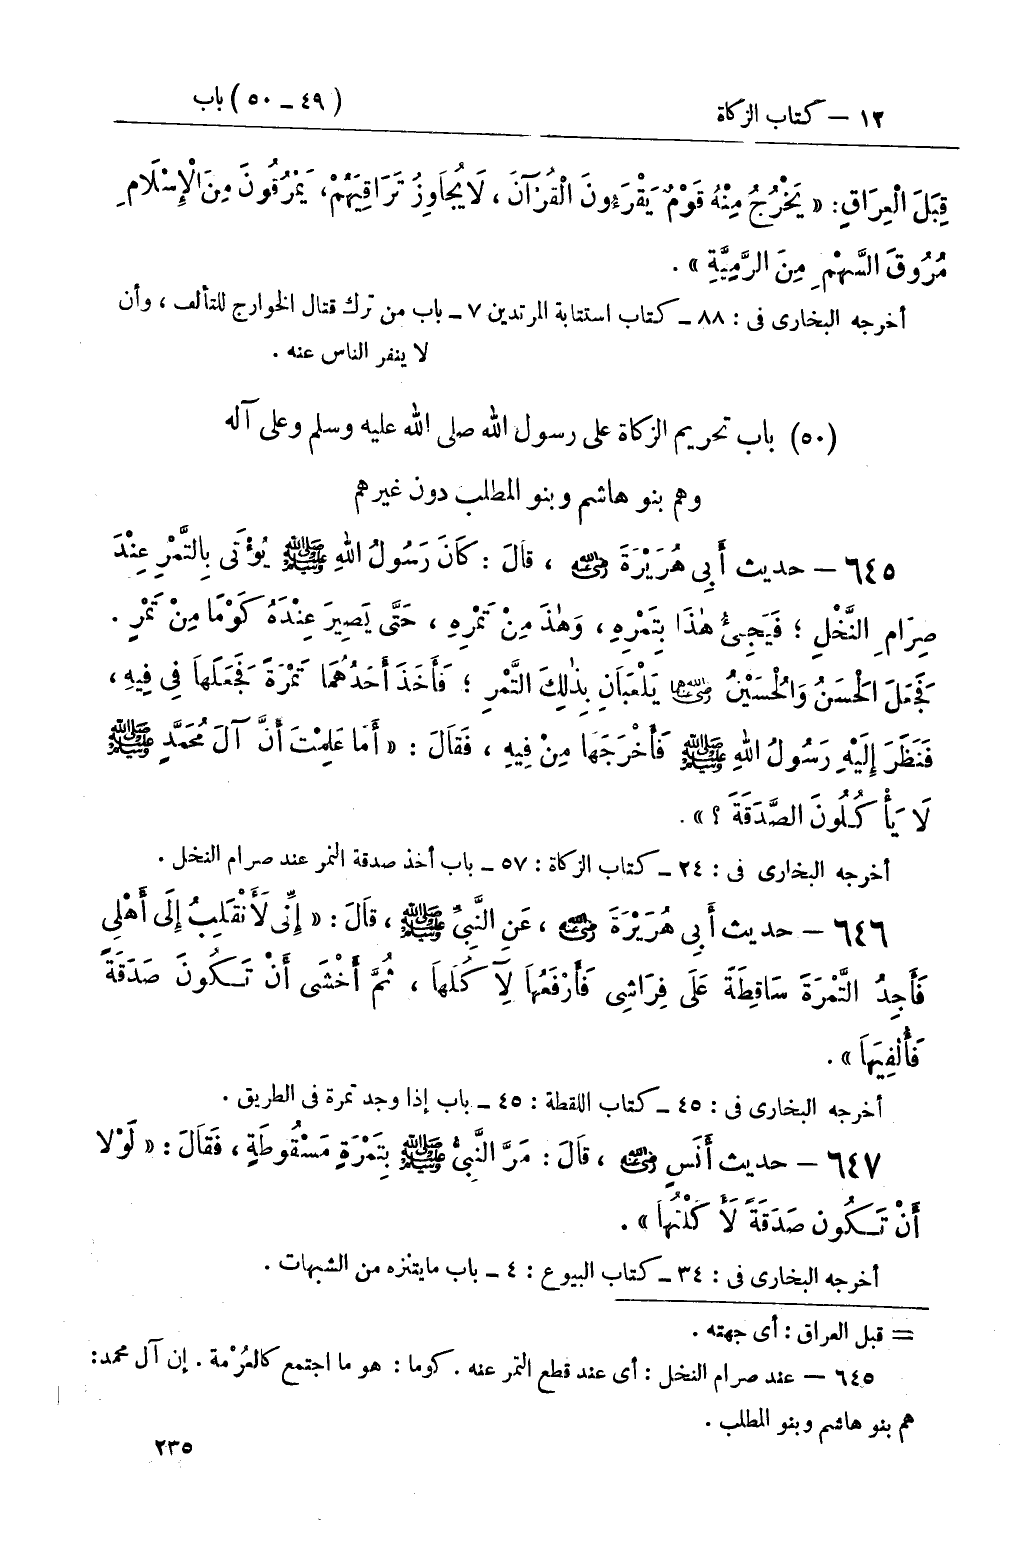 ١٢ – كتاب الزكاة
(٤٩ – ٥٠) باب
قِبَلَ الْعِرَاقِ: « يَخْرُجُ مِنْهُ قَوْمٌ يَقْرَءُونَ الْقُرْآنَ ، لَا يُجَاوِزُ تَرَاقِيَهُمْ، يَمْرُقُونَ مِنَ الْإِسْلَامِ
مُرُوقَ السَّهْمِ مِنَ الرَّمِيَّةِ » .
أخرجه البخارى فى : ٨٨ – كتاب استتابة المرتدين ٧ – باب من ترك قتال الخوارج للتألف ، وأن
لا ينفر الناس عنه .
(٥٠) باب تحريم الزكاة على رسول الله صلى الله عليه وسلم وعلى آله
وهم بنو هاشم وبنو المطلب دون غيرهم
٦٤٥ – حديث أَبِى هُرَيْرَةَ رضي الله عنه ، قَالَ : كَانَ رَسُولُ اللهِ ﷺ يُؤْتَى بِالتَّمْرِ عِنْدَ
صِرَامِ النَّخْلِ ؛ فَيَجِىءُ هٰذَا بِتَمْرِهِ ، وَهٰذَ مِنْ تَمْرِهِ ، حَتَّى يَصِيرَ عِنْدَهُ كَوْمًا مِنْ تَمْرٍ .
فَجَعَلَ الْحَسَنُ وَالْحُسَيْنُ رضي الله عنهما يَلْعَبَانِ بِذٰلِكَ التَّمْرِ ؛ فَأَخَذَ أَحَدُهُمَا تَمْرَةً فَجَعَلَهَا فِى فِيهِ ،
فَنَظَرَ إِلَيْهِ رَسُولُ اللهِ ﷺ فَأَخْرَجَهَا مِنْ فِيهِ ، فَقَالَ : « أَمَا عَلِمْتَ أَنَّ آلَ مُحَمَّدٍ ﷺ
لَا يَأْكُلُونَ الصَّدَقَةَ ؟ » .
أخرجه البخارى فى : ٢٤ – كتاب الزكاة : ٥٧ – باب أخذ صدقة التمر عند صرام النخل .
٦٤٦ – حديث أَبِى هُرَيْرَةَ رضي الله عنه ، عَنِ النَّبِىِّ ﷺ ، قَالَ : « إِنِّى لَأَنْقَلِبُ إِلَى أَهْلِى
فَأَجِدُ التَّمْرَةَ سَاقِطَةً عَلَى فِرَاشِى فَأَرْفَعُهَا لِآكُلَهَا ، ثُمَّ أَخْشَى أَنْ تَكُونَ صَدَقَةً
فَأُلْفِيَهَا » .
أخرجه البخارى فى : ٤٥ – كتاب اللقطة : ٤٥ – باب إذا وجد تمرة فى الطريق .
٦٤٧ – حديث أَنَسٍ رضي الله عنه ، قَالَ : مَرَّ النَّبِىُّ ﷺ بِتَمْرَةٍ مَسْقُوطَةٍ ، فَقَالَ : « لَوْلَا
أَنْ تَكُون صَدَقَةً لَأَكَلْتُهَا » .
أخرجه البخارى فى : ٣٤ – كتاب البيوع : ٤ – باب ما يتنزه من الشبهات .
= قبل العراق : أى جهته .
٦٤٥ – عند صرام النخل : أى عند قطع التمر عنه . كوما : هو ما اجتمع كالعُرْمة . إن آل محمد :
هم بنو هاشم وبنو المطلب .
٢٣٥